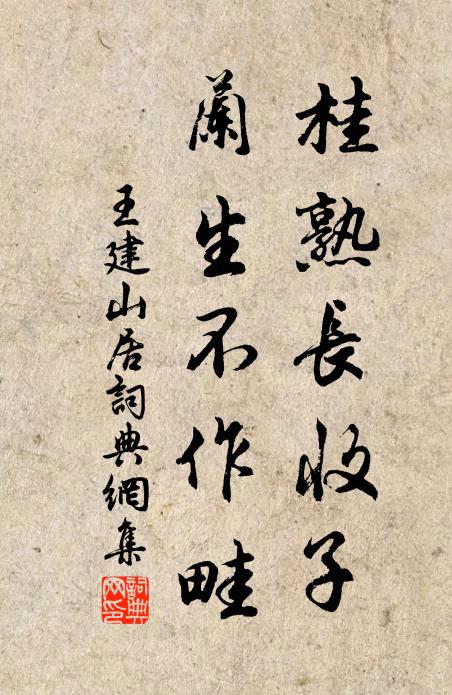 桂熟長收子
蘭生不作畦
王建山居詞典網集
詞典
网印